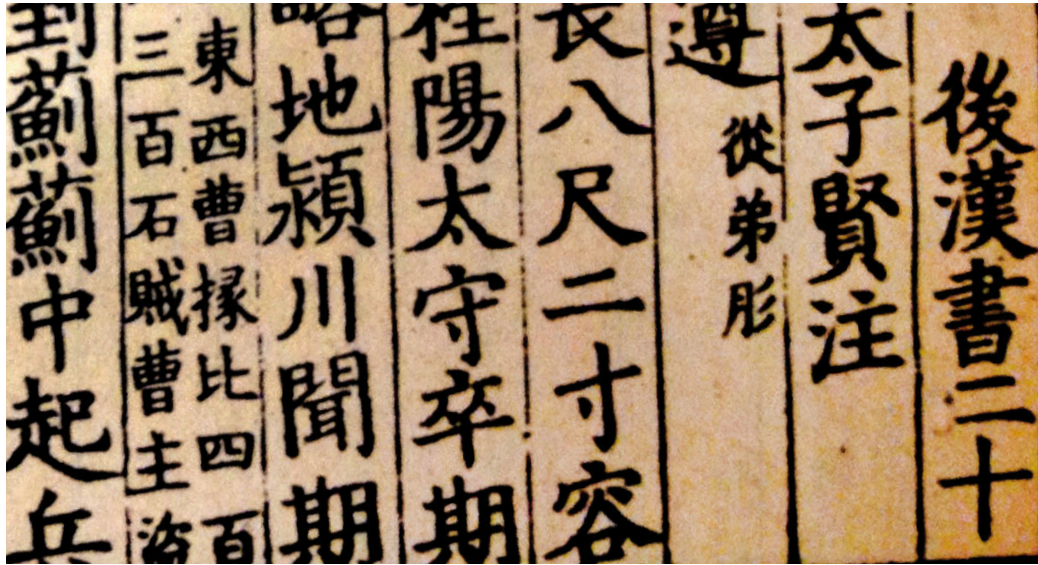 後漢書二十
太子賢注
遵 從弟肜
長八尺二寸容
桂陽太守卒期
略地潁川聞期
東西曹掾比四百
三百石賊曹主盜
到薊薊中起兵